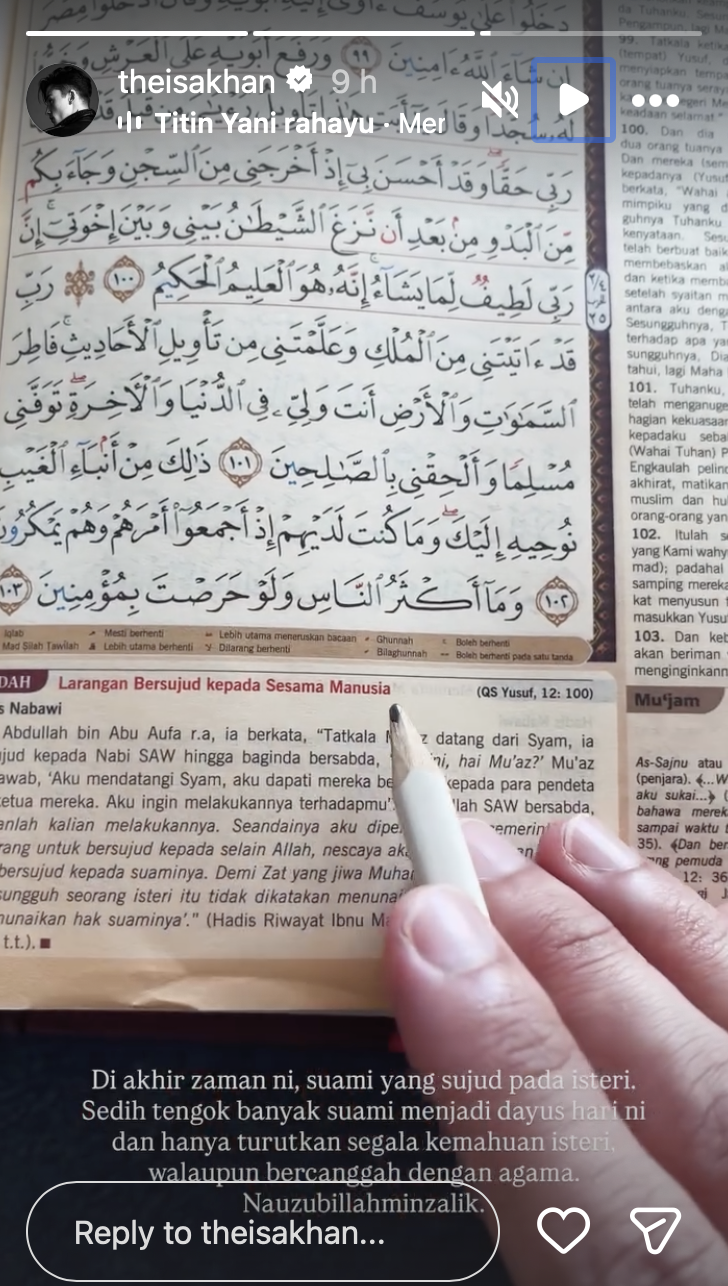 دخلوا على يوسف ءاوى إليه أبويه وقال ادخلوا مصر
إن شاء الله ءامنين ٩٩ ورفع أبويه على العرش وخروا
theisakhan 9 h
Titin Yani rahayu · Mer
له سجدا وقال
رَبِّى حَقًّا وَقَدْ أَحْسَنَ بِىٓ إِذْ أَخْرَجَنِى مِنَ ٱلسِّجْنِ وَجَآءَ بِكُم
مِّنَ ٱلْبَدْوِ مِنۢ بَعْدِ أَن نَّزَغَ ٱلشَّيْطَٰنُ بَيْنِى وَبَيْنَ إِخْوَتِىٓ ۚ إِنَّ
رَبِّى لَطِيفٌ لِّمَا يَشَآءُ ۚ إِنَّهُۥ هُوَ ٱلْعَلِيمُ ٱلْحَكِيمُ ١٠٠ رَبِّ
قَدْ ءَاتَيْتَنِى مِنَ ٱلْمُلْكِ وَعَلَّمْتَنِى مِن تَأْوِيلِ ٱلْأَحَادِيثِ ۚ فَاطِرَ
ٱلسَّمَٰوَٰتِ وَٱلْأَرْضِ أَنتَ وَلِىِّۦ فِى ٱلدُّنْيَا وَٱلْءَاخِرَةِ ۖ تَوَفَّنِى
مُسْلِمًا وَأَلْحِقْنِى بِٱلصَّٰلِحِينَ ١٠١ ذَٰلِكَ مِنْ أَنۢبَآءِ ٱلْغَيْبِ
نُوحِيهِ إِلَيْكَ ۖ وَمَا كُنتَ لَدَيْهِمْ إِذْ أَجْمَعُوٓا۟ أَمْرَهُمْ وَهُمْ يَمْكُرُونَ
١٠٢ وَمَآ أَكْثَرُ ٱلنَّاسِ وَلَوْ حَرَصْتَ بِمُؤْمِنِينَ ١٠٣
Iqlab Mesti berhenti Lebih utama meneruskan bacaan Ghunnah Boleh berhenti
Mad Silah Tawilah Lebih utama berhenti Dilarang berhenti Bilaghunnah Boleh berhenti pada satu tanda
DAH Larangan Bersujud kepada Sesama Manusia (QS Yusuf, 12: 100)
s Nabawi
Abdullah bin Abu Aufa r.a, ia berkata, “Tatkala M z datang dari Syam, ia
jud kepada Nabi SAW hingga baginda bersabda, ni, hai Mu'az?’ Mu'az
awab, ‘Aku mendatangi Syam, aku dapati mereka be kepada para pendeta
ketua mereka. Aku ingin melakukannya terhadapmu’. lah SAW bersabda,
anlah kalian melakukannya. Seandainya aku dipe memerin
rang untuk bersujud kepada selain Allah, nescaya ak an
bersujud kepada suaminya. Demi Zat yang jiwa Muha
sungguh seorang isteri itu tidak dikatakan menunai
nunaikan hak suaminya’.” (Hadis Riwayat Ibnu M
t.t.). ■
da Tuhanku. Ses
Pengampun, lagi Ma
99. Tatkala ketik
(tempat) Yusuf, d
menyiapkan temp
orang tuanya seray
100. Dan dia
dua orang tuanya
Dan mereka (sem
kepadanya (Yusuf
berkata, “Wahai
mimpiku yang d
guhnya Tuhanku
kenyataan. Sesu
telah berbuat baik
membebaskan a
dan ketika memba
setelah syaitan m
antara aku denga
Sesungguhnya, T
terhadap apa ya
sungguhnya, Dia
tahui, lagi Maha
101. Tuhanku,
telah menganuge
hagian kekuasaan
kepadaku seba
(Wahai Tuhan) P
Engkaulah pelind
akhirat, matikan
muslim dan hu
orang-orang yan
102. Itulah s
yang Kami wahy
mad); padahal
samping mereka
kat menyusun
masukkan Yusu
103. Dan keb
akan beriman
menginginkann
Mu‘jam
As-Sajnu atau
(penjara). ﴾...W
aku sukai...﴿ (
bahawa merek
sampai waktu t
35). ﴾Dan ber
ng pemuda
12: 36
Di akhir zaman ni, suami yang sujud pada isteri.
Sedih tengok banyak suami menjadi dayus hari ni
dan hanya turutkan segala kemahuan isteri,
walaupun bercanggah dengan agama.
Nauzubillahminzalik.
Reply to theisakhan...